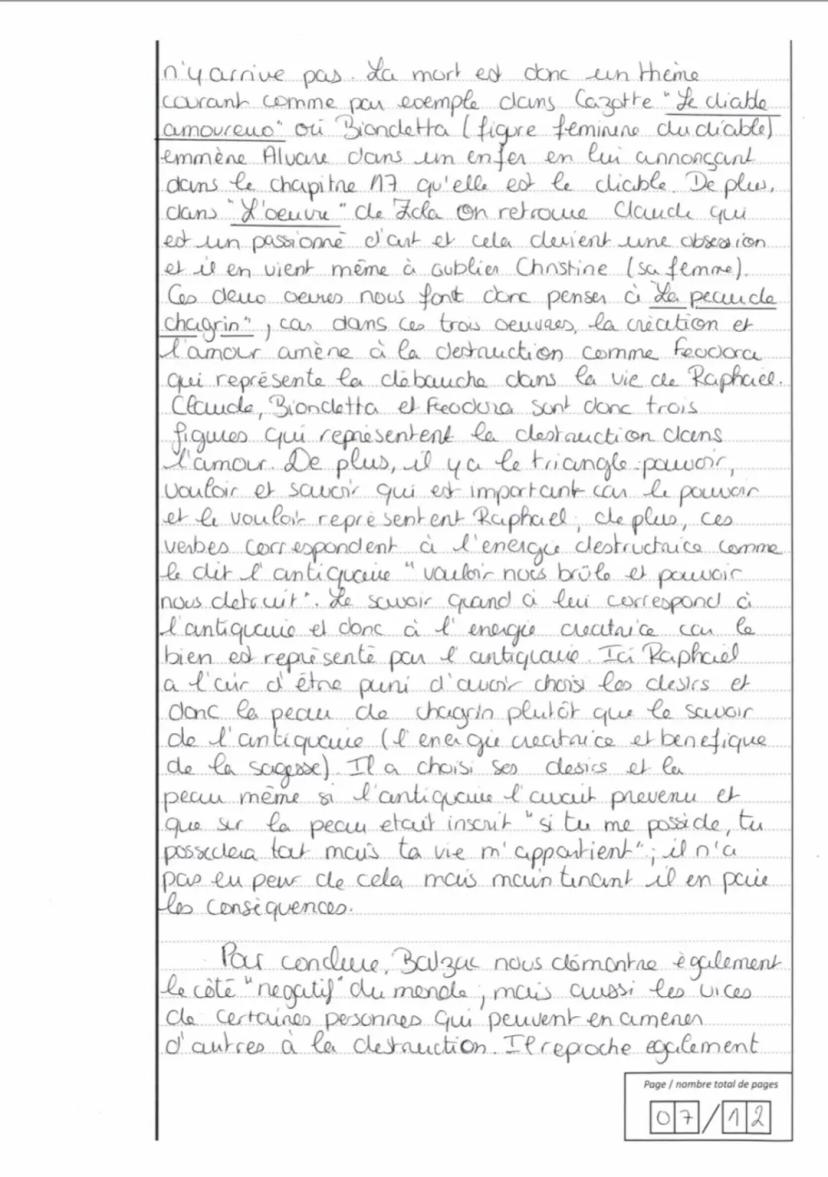 n'y arrive pas. La mort est donc un thème
courant comme par exemple dans Cazotte "Le diable
amoureux" où Biondetta (figure feminine du diable)
emmène Alvare dans un enfer en lui annonçant
dans le chapitre 17 qu'elle est le diable. De plus,
dans "L'oeuvre" de Zola on retrouve Claude qui
est un passionné d'art et cela devient une obsession
et il en vient même à oublier Christine (sa femme).
Ces deux oeuvres nous font donc penser à La peau de
chagrin", car dans ces trois oeuvres, la création et
l'amour amène à la destruction comme Feodora
qui représente la débauche dans la vie de Raphael.
Claude, Biondetta et Feodora sont donc trois
figures qui représentent la destruction dans
l'amour. De plus, il y a le triangle pouvoir,
vouloir et savoir qui est important car le pouvoir
et le vouloir représentent Raphael, de plus, ces
verbes correspondent à l'energie destructrice comme
le dit l'antiquaire "vouloir nous brûle et pouvoir
nous detruit". Le savoir quand à lui correspond à
l'antiquaire et donc à l'energie creatrice car le
bien est représenté par l'antiquaire. Ici Raphaël
a l'air d'être puni d'avoir choisi les desirs et
donc la peau de chagrin plutôt que le savoir
de l'antiquaire (l'energie creatrice et benefique
de la sagesse). Il a choisi ses desirs et la
peau même si l'antiquaire l'avait prevenu et
que sur la peau etait inscrit "si tu me possède, tu
possedera tout mais ta vie m'appartient"; il n'a
pas eu peur de cela mais maintenant il en paie
les conséquences.
Pour conclure, Balzac nous démontre également
le côté "negatif" du monde, mais aussi les vices
de certaines personnes qui peuvent en amener
d'autres à la destruction. Il reproche egalement
Page / nombre total de pages
07/12